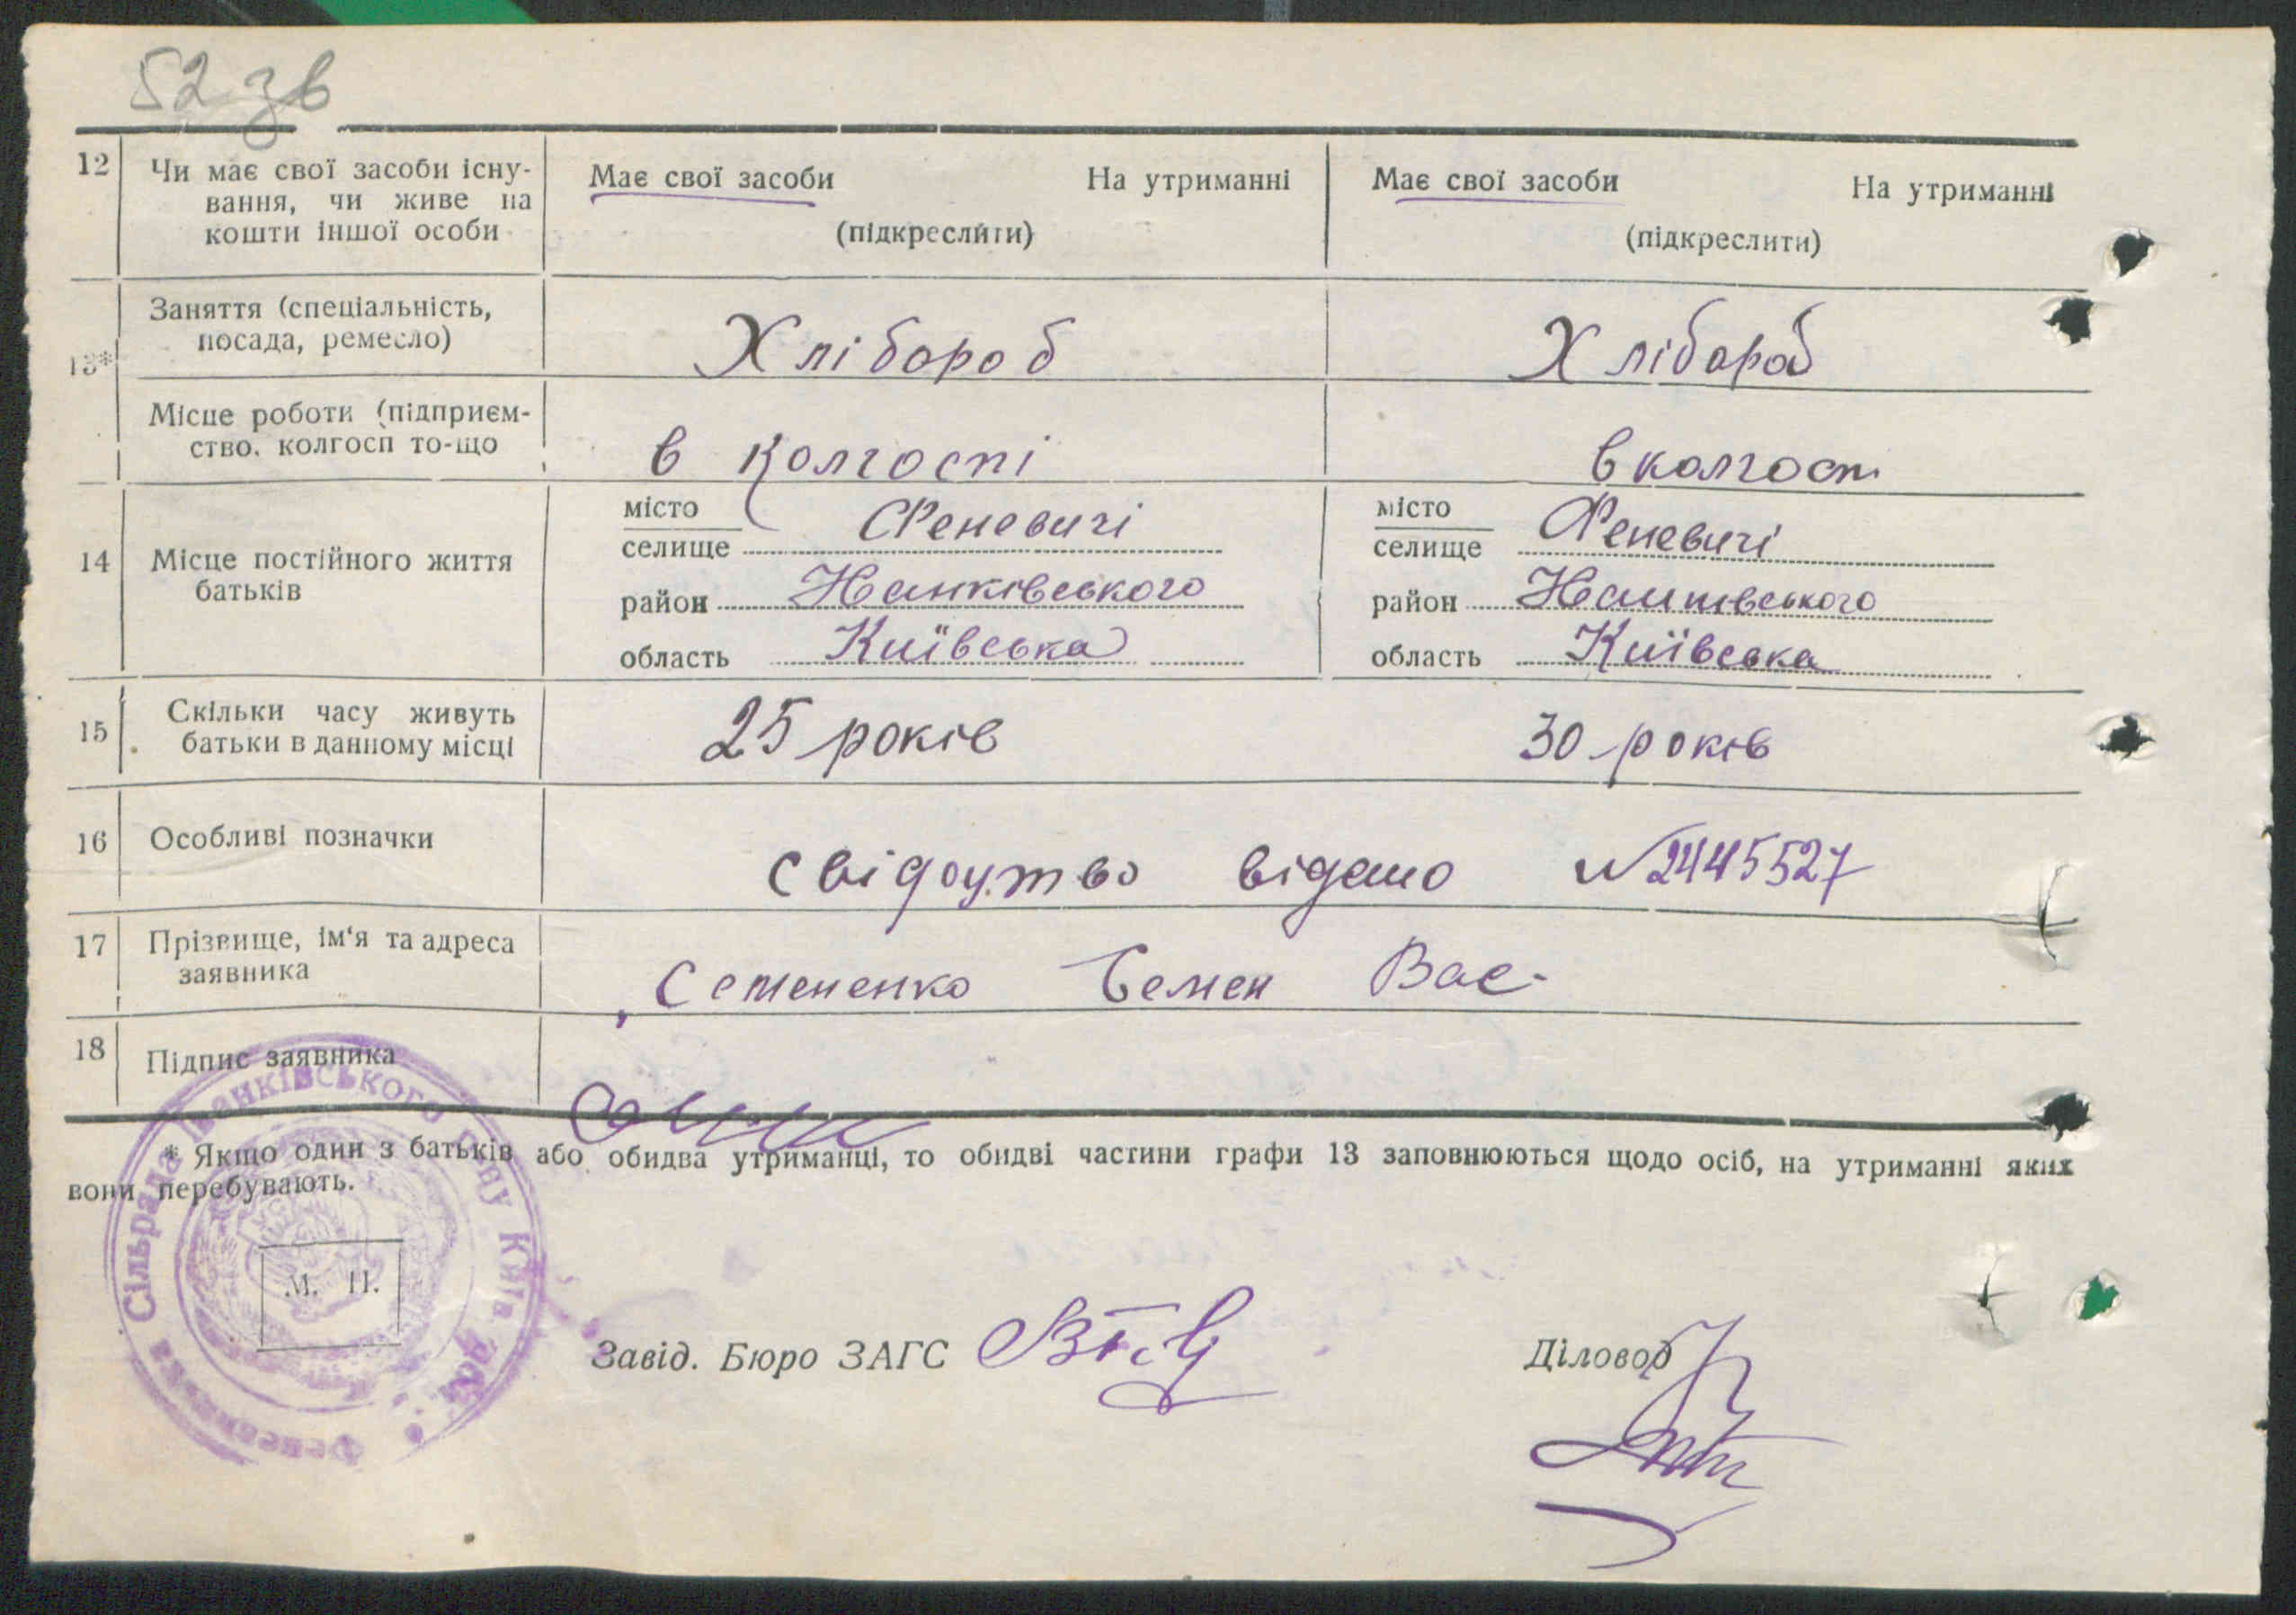 52 зв
12 Чи має свої засоби існу- Має свої засоби На утриманні Має свої засоби На утриманні
вання, чи живе на
кошти іншої особи (підкреслити) (підкреслити)
13* Заняття (спеціальність, Хлібороб Хлібороб
посада, ремесло)
Місце роботи (підприєм- в колгоспі в колгосп
ство. колгосп то-що
14 Місце постійного життя батьків
місто селище Феневичі місто селище Феневичі
район Іванківського район
область Київська область Київська
15 Скільки часу живуть 25 років 30 років
батьки в данному місці
16 Особливі позначки свідоцтво видано №2445527
17 Прізвище, ім'я та адреса Семененко Семен Вас-
заявника
18 Підпис заявника
* Якщо один з батьків або обидва утриманці, то обидві частини графи 13 заповнюються щодо осіб, на утриманні яких
вони перебувають.
Феневицька Сільрада Іванківського р-ну Київ. обл.
М. П.
Завід. Бюро ЗАГС Діловод